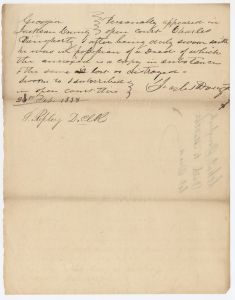 Georgia } Personally appeared in
County } open court Charles
Daugherty & after being duly sworn saith
he was in possession of a Deed of which
the annexed is a copy in substance
& the same is lost or destroyed
Sworn to & subscribed }
in open court this } Charles Dougherty
Feb. 1838
Ripley D. Clk